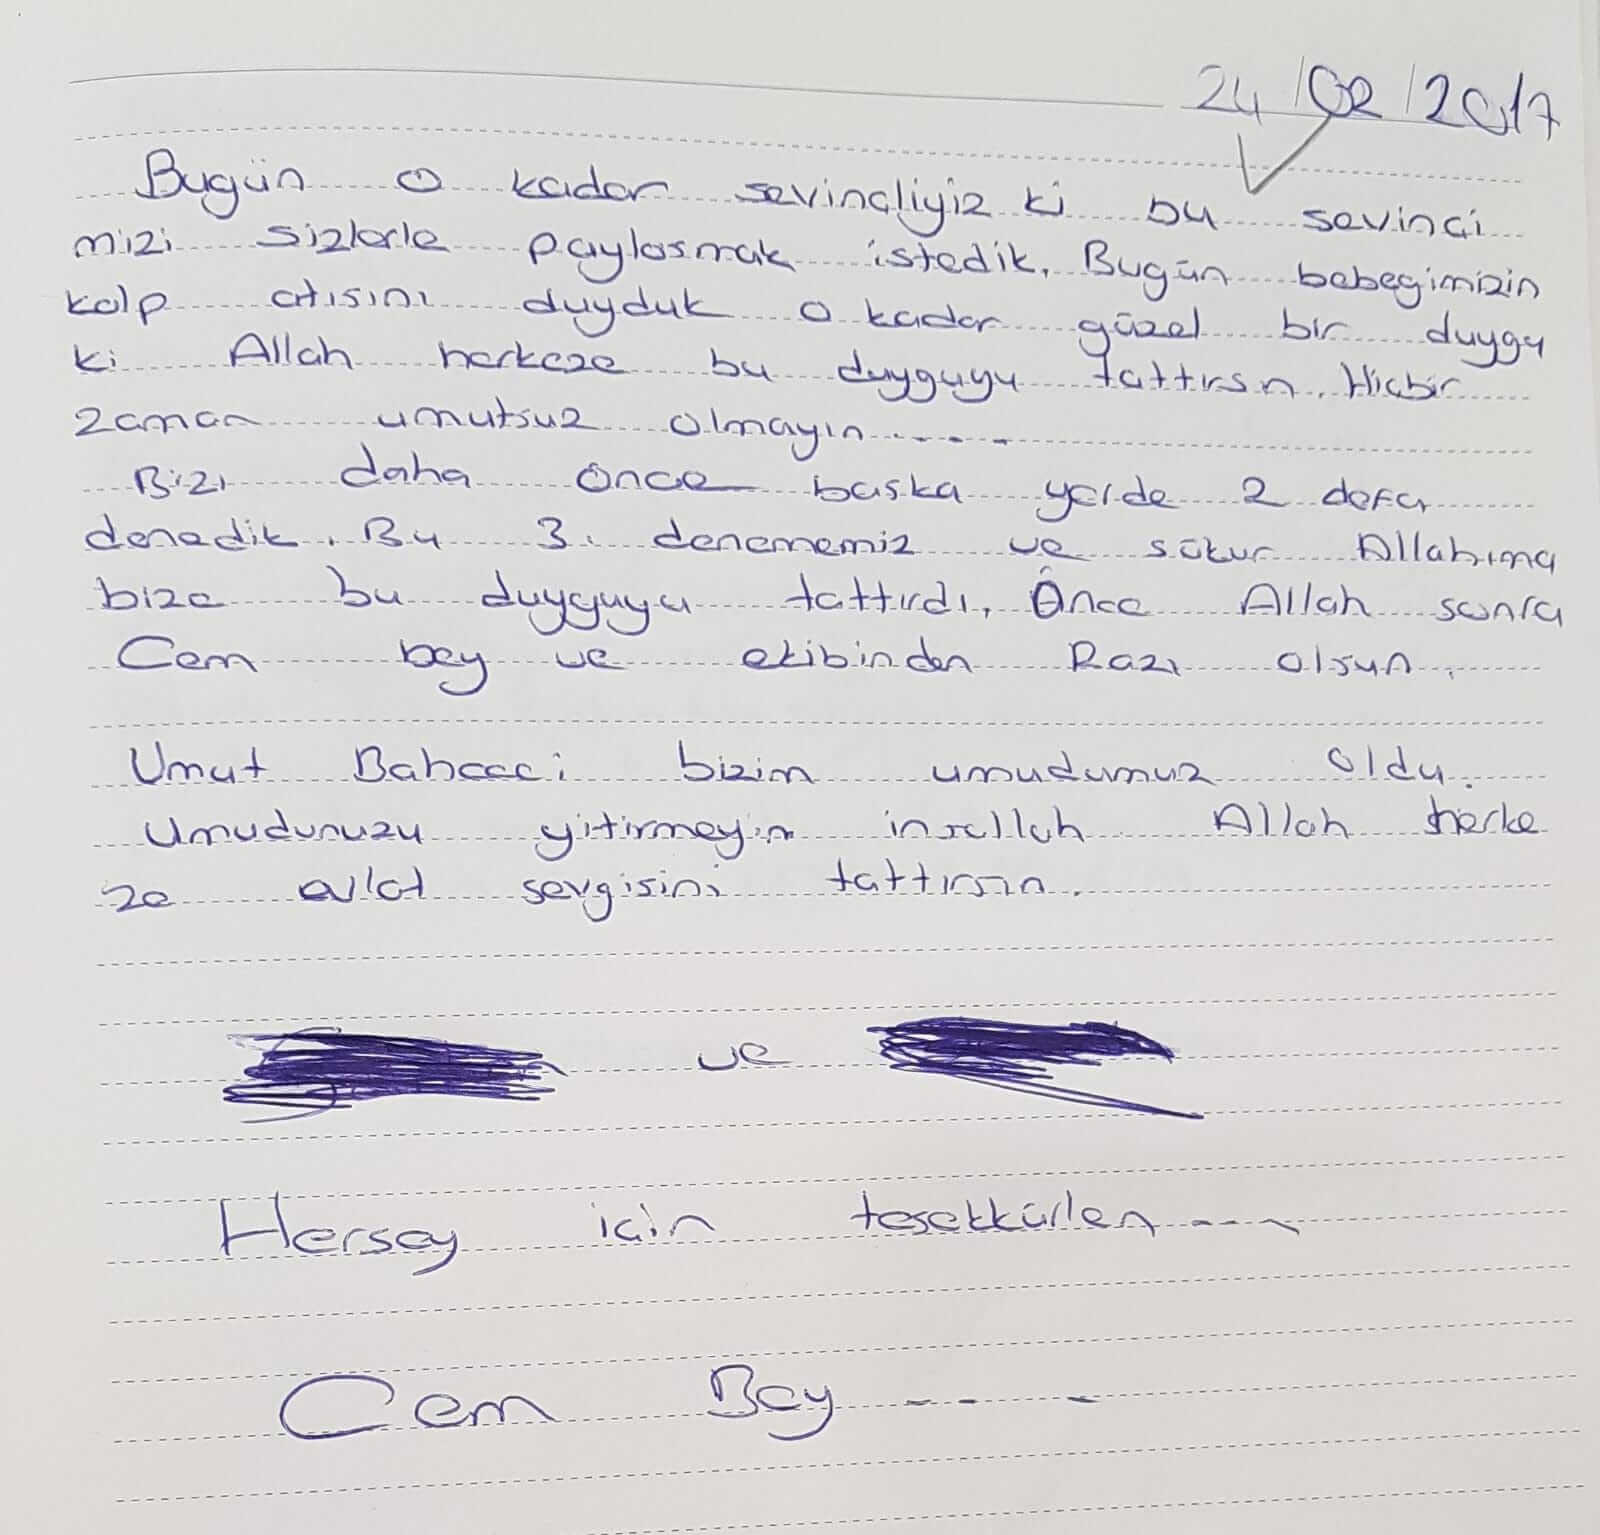 24/02/2017
Bugün o kadar sevinçliyiz ki bu sevinci
mizi sizlerle paylasmak istedik. Bugün bebegimizin
kalp atısını duyduk o kadar güzel bir duygu
ki Allah herkeze bu duyguyu tattırsın. Hiçbir
zaman umutsuz olmayın.....
Bizi daha önce baska yerde 2 defa
denedik. Bu 3. denememiz ve sükur Allahıma
bize bu duyguyu tattırdı. Önce Allah sonra
Cem bey ve ekibinden Razı olsun.
Umut Bahceci bizim umudumuz oldu.
Umudunuzu yitirmeyin insallah Allah herke
ze evlat sevgisini tattırsın.
ve
Hersey için tesekkürler...
Cem Bey ...